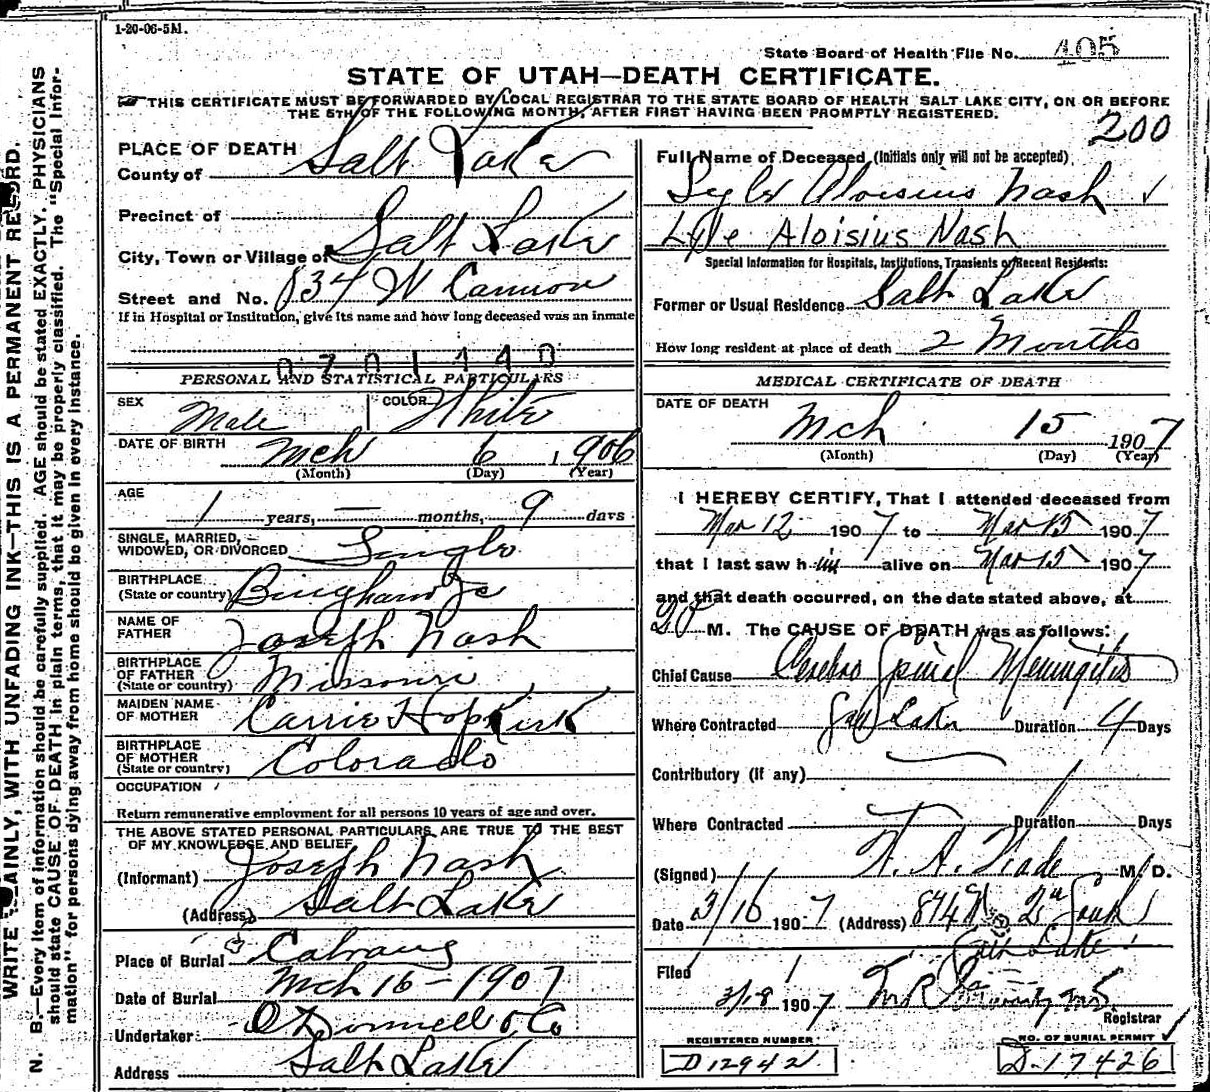 1-20-06-5M.
State Board of Health File No. 405
STATE OF UTAH—DEATH CERTIFICATE.
THIS CERTIFICATE MUST BE FORWARDED BY LOCAL REGISTRAR TO THE STATE BOARD OF HEALTH SALT LAKE CITY, ON OR BEFORE
THE 5TH OF THE FOLLOWING MONTH, AFTER FIRST HAVING BEEN PROMPTLY REGISTERED.
200
PLACE OF DEATH
County of Salt Lake
Precinct of
City, Town or Village of Salt Lake
Street and No. 834 W Cannon
If in Hospital or Institution, give its name and how long deceased was an inmate
0701440
PERSONAL AND STATISTICAL PARTICULARS
SEX Male COLOR White
DATE OF BIRTH Mch 6 1906
(Month) (Day) (Year)
AGE
1 years, — months, 9 days
SINGLE, MARRIED,
WIDOWED, OR DIVORCED Single
BIRTHPLACE
(State or country) Bingham
NAME OF
FATHER Joseph Nash
BIRTHPLACE
OF FATHER
(State or country) Missouri
MAIDEN NAME
OF MOTHER Carrie Hopkirk
BIRTHPLACE
OF MOTHER
(State or country) Colorado
OCCUPATION
Return remunerative employment for all persons 10 years of age and over.
THE ABOVE STATED PERSONAL PARTICULARS ARE TRUE TO THE BEST
OF MY KNOWLEDGE AND BELIEF
(Informant) Joseph Nash
(Address) Salt Lake
Place of Burial Calvary
Date of Burial Mch 16 - 1907
Undertaker O'Donnell & Co
Address Salt Lake
Full Name of Deceased (Initials only will not be accepted)
Aloisius Nash ✓
Lyle Aloisius Nash
Special Information for Hospitals, Institutions, Transients or Recent Residents:
Former or Usual Residence Salt Lake
How long resident at place of death 2 Months
MEDICAL CERTIFICATE OF DEATH
DATE OF DEATH
Mch 15 1907
(Month) (Day) (Year)
I HEREBY CERTIFY, That I attended deceased from
Mar 12 1907 to Mar 15 1907
that I last saw h im alive on Mar 15 1907
and that death occurred, on the date stated above, at
M. The CAUSE OF DEATH was as follows:
Chief Cause Cerebro Spinal Meningitis
Where Contracted Salt Lake Duration 4 Days
Contributory (if any)
Where Contracted Duration Days
(Signed) M. D.
Date 3/16 1907 (Address) South
Salt Lake
Filed
3/18 1907
Registrar
REGISTERED NUMBER
D12942
NO. OF BURIAL PERMIT
D-17426
WRITE PLAINLY, WITH UNFADING INK—THIS IS A PERMANENT RECORD.
N. B.—Every item of information should be carefully supplied. AGE should be stated EXACTLY. PHYSICIANS
should state CAUSE OF DEATH in plain terms, that it may be properly classified. The "Special Infor-
mation" for persons dying away from home should be given in every instance.